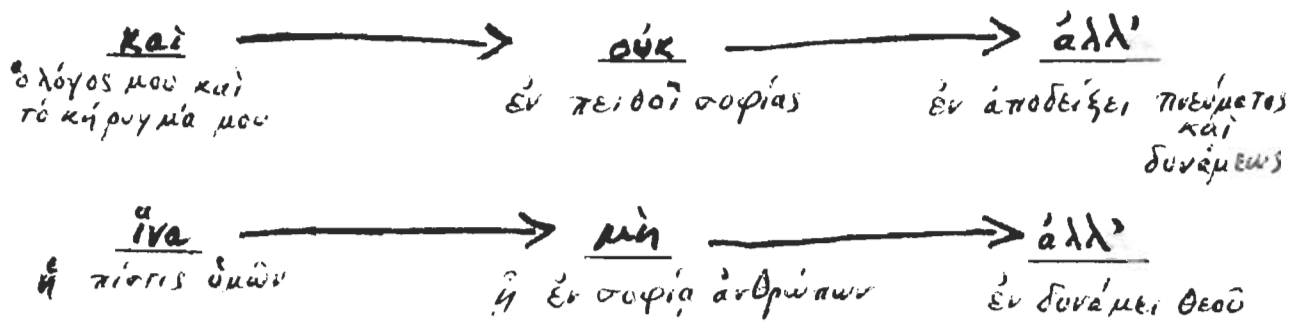 καὶ οὐκ ἀλλ’
ὁ λόγος μου καὶ ἐν πειθοῖ σοφίας ἐν ἀποδείξει πνεύματος
τὸ κήρυγμά μου καὶ
δυνάμεως
ἵνα μὴ ἀλλ’
ἡ πίστις ὑμῶν ᾖ ἐν σοφίᾳ ἀνθρώπων ἐν δυνάμει θεοῦ